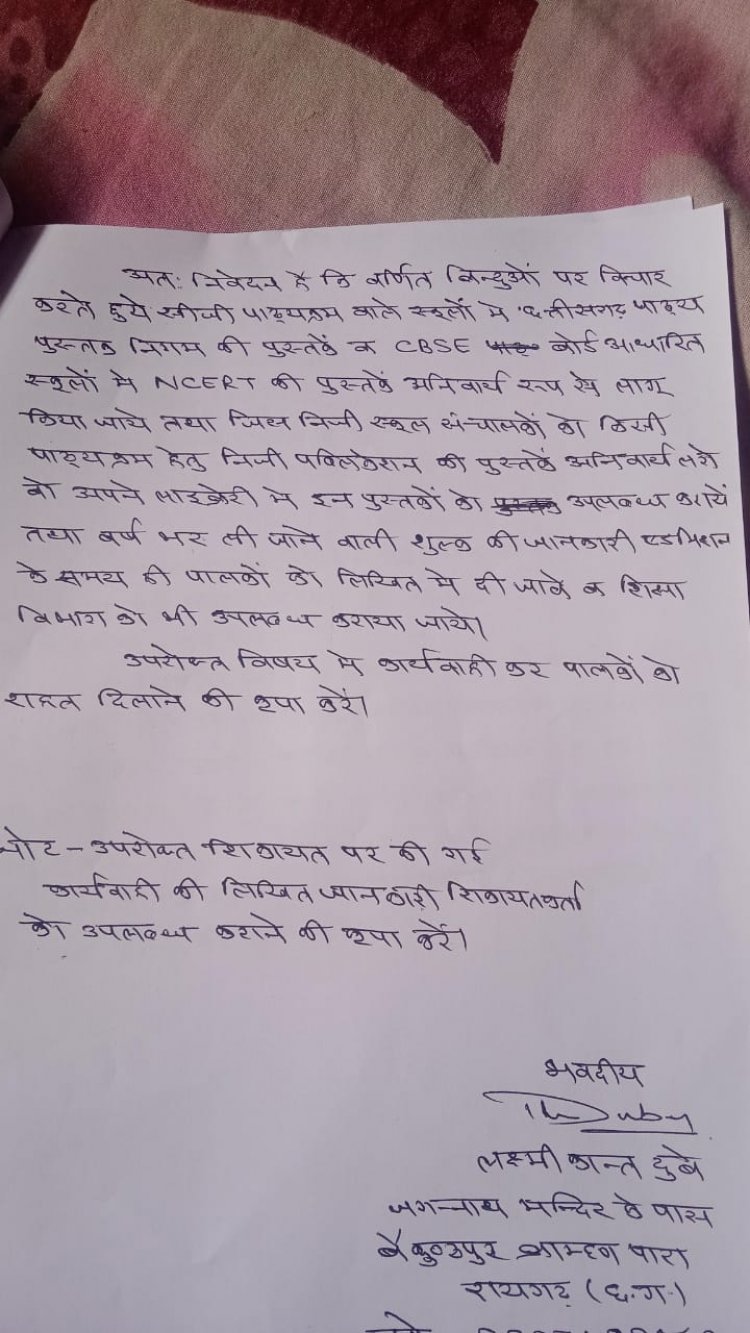 अतः निवेदन है कि वर्णित बिन्दुओं पर विचार
करते हुये सीजी पाठ्यक्रम वाले स्कूलों मे छत्तीसगढ़ पाठ्य
पुस्तक निगम की पुस्तकें व CBSE बोर्ड आधारित
स्कूलों मे NCERT की पुस्तकें अनिवार्य रूप से लागू
किया जाये तथा जिस निजी स्कूल संचालकों को किसी
पाठ्यक्रम हेतु निजी पब्लिकेशन की पुस्तकें अनिवार्य लगे
वो अपने लाइब्रेरी मे इन पुस्तकों को उपलब्ध करायें
तथा वर्ष भर ली जाने वाली शुल्क की जानकारी एडमिशन
के समय ही पालकों को लिखित मे दी जावे व शिक्षा
विभाग को भी उपलब्ध कराया जाये।
उपरोक्त विषय मे कार्यवाही कर पालकों को
राहत दिलाने की कृपा करें।
नोट - उपरोक्त शिकायत पर की गई
कार्यवाही की लिखित जानकारी शिकायतकर्ता
को उपलब्ध कराने की कृपा करें।
भवदीय
लक्ष्मी कान्त दुबे
जगन्नाथ मन्दिर के पास
बैकुण्ठपुर ब्राम्हण पारा
रायगढ़ (छ.ग.)